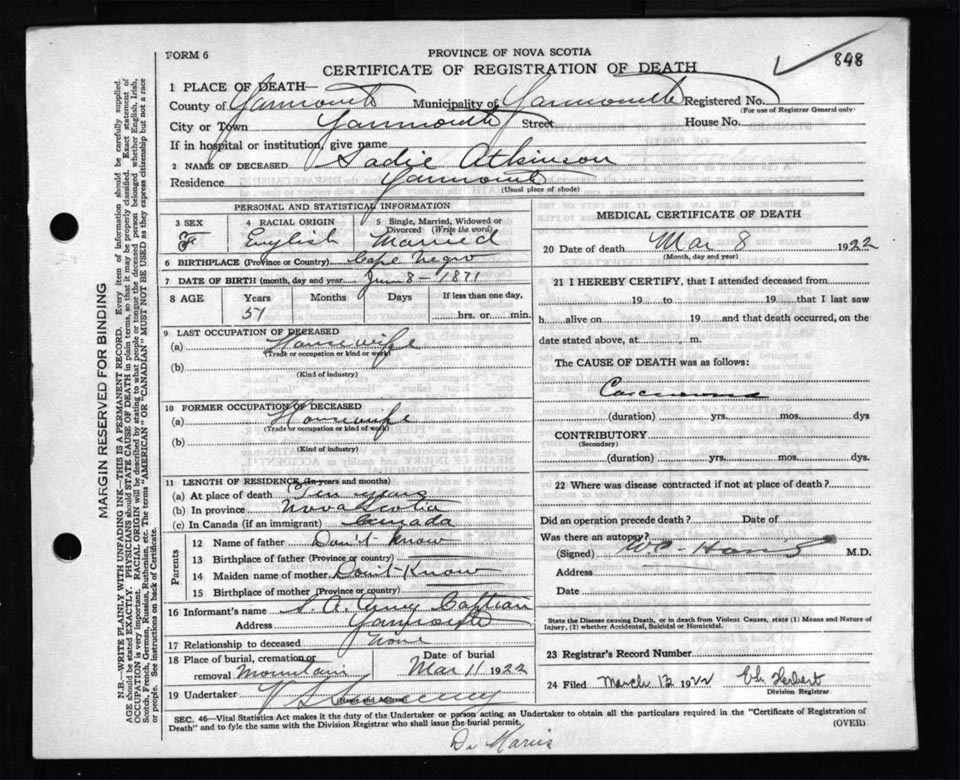 FORM 6
PROVINCE OF NOVA SCOTIA
CERTIFICATE OF REGISTRATION OF DEATH
848
1 PLACE OF DEATH—
County of Yarmouth Municipality of Yarmouth Registered No.
(For use of Registrar General only)
City or Town Yarmouth Street House No.
If in hospital or institution, give name
2 NAME OF DECEASED Sadie Atkinson
Residence Yarmouth
(Usual place of abode)
PERSONAL AND STATISTICAL INFORMATION
3 SEX 4 RACIAL ORIGIN 5 Single, Married, Widowed or Divorced (Write the word)
F English Married
6 BIRTHPLACE (Province or Country) Cape Negro
7 DATE OF BIRTH (month, day and year) 8 - 1871
8 AGE Years Months Days If less than one day,
51 hrs. or min.
9 LAST OCCUPATION OF DECEASED
(a) Housewife
(Trade or occupation or kind of work)
(b)
(Kind of industry)
10 FORMER OCCUPATION OF DECEASED
(a) Housewife
(Trade or occupation or kind of work)
(b)
(Kind of industry)
11 LENGTH OF RESIDENCE (In years and months)
(a) At place of death Ten years
(b) In province Nova Scotia
(c) In Canada (if an immigrant) Canada
Parents
12 Name of father Don't Know
13 Birthplace of father (Province or country)
14 Maiden name of mother Don't Know
15 Birthplace of mother (Province or country)
16 Informant's name S. A. Army Captain
Address Yarmouth
17 Relationship to deceased None
18 Place of burial, cremation or removal Mountain Date of burial Mar 11 1922
19 Undertaker V S Sweeny
(Name and Address)
MEDICAL CERTIFICATE OF DEATH
20 Date of death Mar 8 1922
(Month, day and year)
21 I HEREBY CERTIFY, that I attended deceased from
19 to 19 that I last saw
h alive on 19 and that death occurred, on
date stated above, at m.
The CAUSE OF DEATH was as follows:
Carcinoma
(duration) yrs. mos. dys
CONTRIBUTORY
(Secondary)
(duration) yrs. mos. dys.
22 Where was disease contracted if not at place of death?
Did an operation precede death? Date of
Was there an autopsy?
(Signed) M.D.
Address
Date
State the Disease causing Death, or in death from Violent Causes, state (1) Means and Nature of Injury, (2) whether Accidental, Suicidal or Homicidal.
23 Registrar's Record Number
24 Filed March 13 1922 Herbert
Division Registrar
SEC. 46—Vital Statistics Act makes it the duty of the Undertaker or person acting as Undertaker to obtain all the particulars required in the "Certificate of Registration of
Death" and to fyle the same with the Division Registrar who shall issue the burial permit. (OVER)
MARGIN RESERVED FOR BINDING
N.B.—WRITE PLAINLY WITH UNFADING INK—THIS IS A PERMANENT RECORD. Every item of information should be carefully supplied.
AGE should be stated EXACTLY. PHYSICIANS should STATE CAUSE OF DEATH in plain terms, so that it may be properly classified. Exact statement of
OCCUPATION is very important. RACIAL ORIGIN will be described by stating to what people or tongue the deceased person belonged whether English, Irish,
Scotch, French, German, Russian, Ruthenian, etc. The terms "AMERICAN" OR "CANADIAN" MUST NOT BE USED as they express citizenship but not a race
or people. See instructions on back of Certificate.